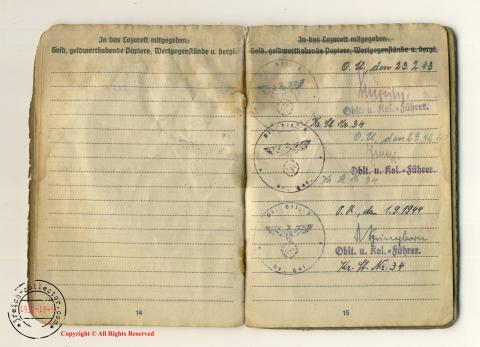 In das Lazarett mitgegeben:
Geld, geldwerthabende Papiere, Wertgegenstände u. dergl.
14
In das Lazarett mitgegeben:
Geld, geldwerthabende Papiere, Wertgegenstände u. dergl.
O. U., den 23.2.43
Oblt. u. Kol.-Führer.
Kr. St. Nr. 34
O. U. den 23.
Oblt. u. Kol.-Führer.
Kr. St. Nr. 34
O. U., den 1.9.1944
Oblt. u. Kol.-Führer.
Kr. St. Nr. 34
15
3reich-collector.com
Copyright © All Rights Reserved